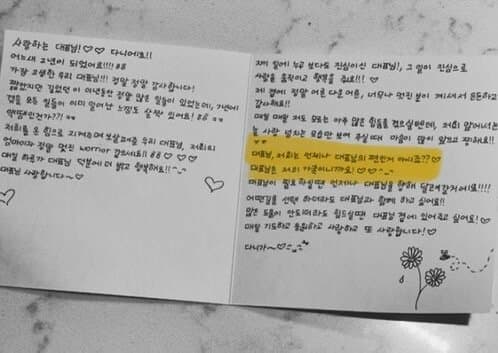 사랑하는 대표님! ♡♡ 다니에요!!
어느새 2년이 되었어요!!!
가장 고생한 우리 대표님!!! 정말 정말 감사합니다!
짧았지만 길었던 이 이년동안 정말 많은 일들이 있었는데, 7년에
겪을 모든 일들이 이미 일어난 느낌도 살짝 있어요!
액땜인건가??!
저희를 온 힘으로 지켜주며 보살펴주는 우리 대표님, 저희의
엄마이자 정말 멋진 worrior 같으세요!! ♡♡
매일 하루가 대표님 덕분에 더 밝고 행복해요!!^_^
대표님 사랑합니다~♡
자기 일에 누구 보다도 진심이신 대표님!, 그 일이 진심으로
사람을 움직이고 행복을 줘요!!!♡
제 곁에 정말 어른다운 어른, 너무나 멋진 분이 계셔서 든든하고
감사해요!!
매일 매일 저도 모르는 아주 많은 힘듦을 겪으실텐데, 저희 앞에서는
늘 사랑 넘치는 모습만 보여 주실때 마음이 많이 아프고 찡해요!!
대표님, 저희는 언제나 대표님의 편인거 아시죠?? ♡
대표님은 저의 가족이니까요! ♡♡^^
대표님이 필요하실땐 언제나 대표님을 향해 달려갈거에요!!!!
어떤길을 선택 하더라도 대표님과 함께 하고 싶어요!!
많은 도움이 안되더라도 힘드실땐 대표님 곁에 있어주고 싶어요!
매일 기도하고 응원하고 사랑하고 또 사랑합니다!♡
다니가~♡